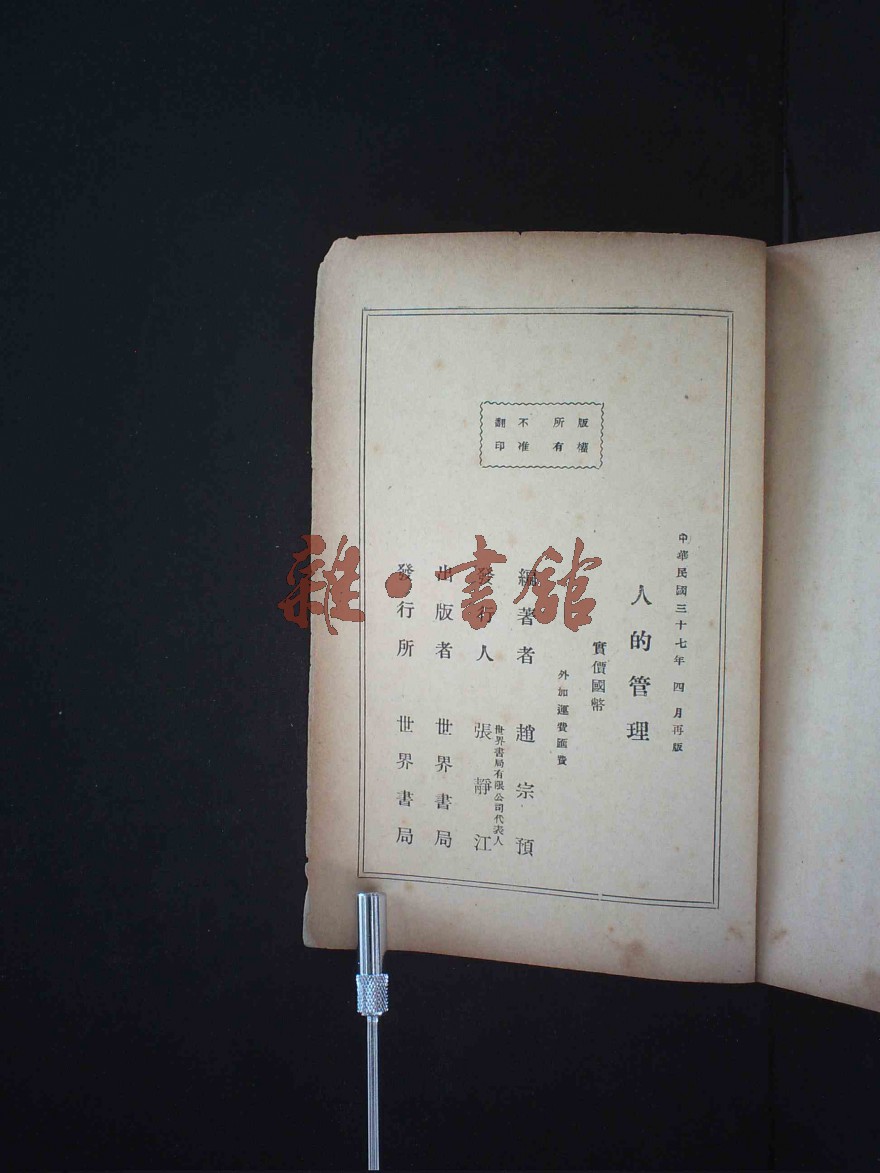 版權
所有
不准
翻印
中華民國三十七年 四月再版
人的管理
實價國幣
外加運費匯費
編著者 趙宗預
發行人 世界書局有限公司代表人 張靜江
出版者 世界書局
發行所 世界書局
雜·書舘